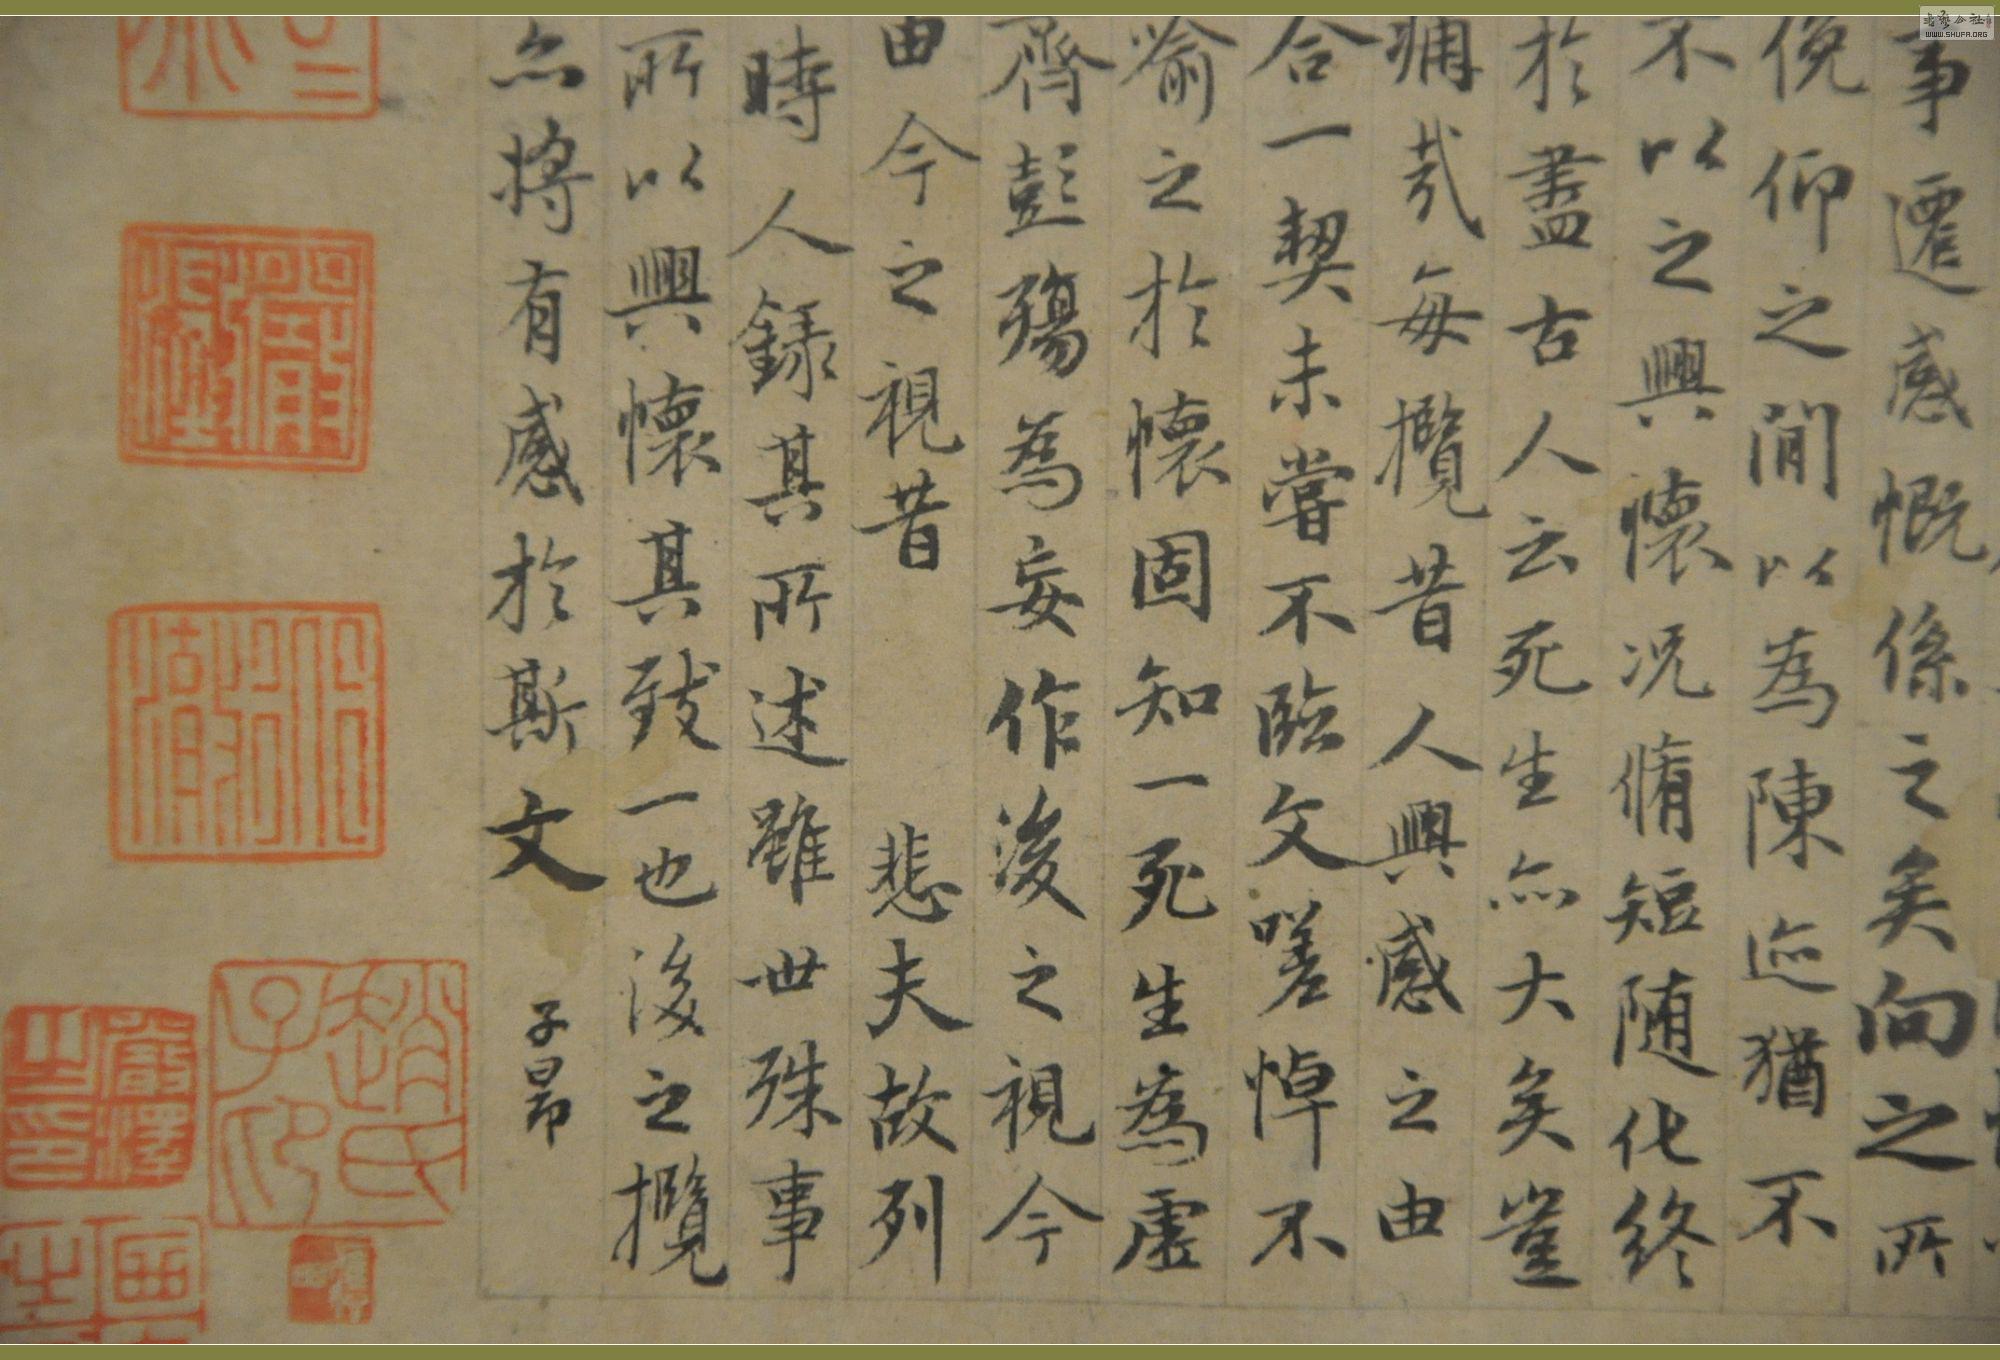 事遷感慨係之矣向之所
俛仰之間以為陳迹猶不
不以之興懷況脩短隨化終
於盡古人云死生亦大矣豈
痛哉每攬昔人興感之由
合一契未嘗不臨文嗟悼不
喻之於懷固知一死生為虛
齊彭殤為妄作後之視今
由今之視昔 悲夫故列
時人錄其所述雖世殊事
所以興懷其致一也後之攬
亦將有感於斯文
子昂
趙氏子印
嚴澤之印
WWW.SHUFA.ORG